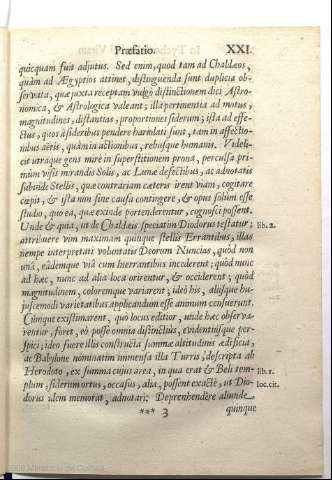 Præfatio. XXI.
quicquam fuit adjutus. Sed enim, quod tam ad Chaldæos,
quàm ad Ægyptios attinet, distinguenda sunt duplicia ob-
servata, quæ juxta receptam vulgò distinctionem dici Astro-
nomica, & Astrologica valeant; illa pertinentia ad motus,
magnitudines, distantias, proportiones siderum; ista ad effe-
ctus, quos à sideribus pendere hariolati sunt, tam in affectio-
nibus aëris, quàm in actionibus, rebusque humanis. Videli-
cit utraque gens mirè in superstitionem prona, perculsa pri-
mùm visis mirandis Solis, ac Lunæ defectibus, ac adnotatis
subinde Stellis, quæ contrariam cæteris irent viam, cogitare
cœpit, & ista non sine causa contingere, & opus solùm esse
studio, quo ea, quæ exinde portenderentur, cognosci possent.
Unde & quia, ut de Chaldæis speciatim Diodorus testatur; lib. 2.
attribuere vim maximam quinque stellis Errantibus, illas
nempe interpretati voluntatis Deorum Nuncias, quòd non
unâ, eâdemque viâ cum Inerrantibus incederent; quòd nunc
ad hæc, nunc ad alia loca orirentur, & occiderent; quòd
magnitudinem, coloremque variarent; ideò his, aliisque hu-
juscemodi varietatibus applicandum esse animum censuerunt.
Cùmque existimarent, quo locus editior, unde hæc observa-
rentur, foret, eò posse omnia distinctiùs, evidentiùsque per-
spici; ideo fuere illis constructa summæ altitudinis ædificia,
ac Babylone nominatim immensa illa Turris, descripta ab
Herodoto, ex summa cujus area, in qua erat & Beli tem- lib. 1.
plum, siderum ortus, occasus, alia, possent exactè, ut Dio- loc. cit.
dorus idem memorat, adnotari: Deprehendère aliunde
*** 3 quinque